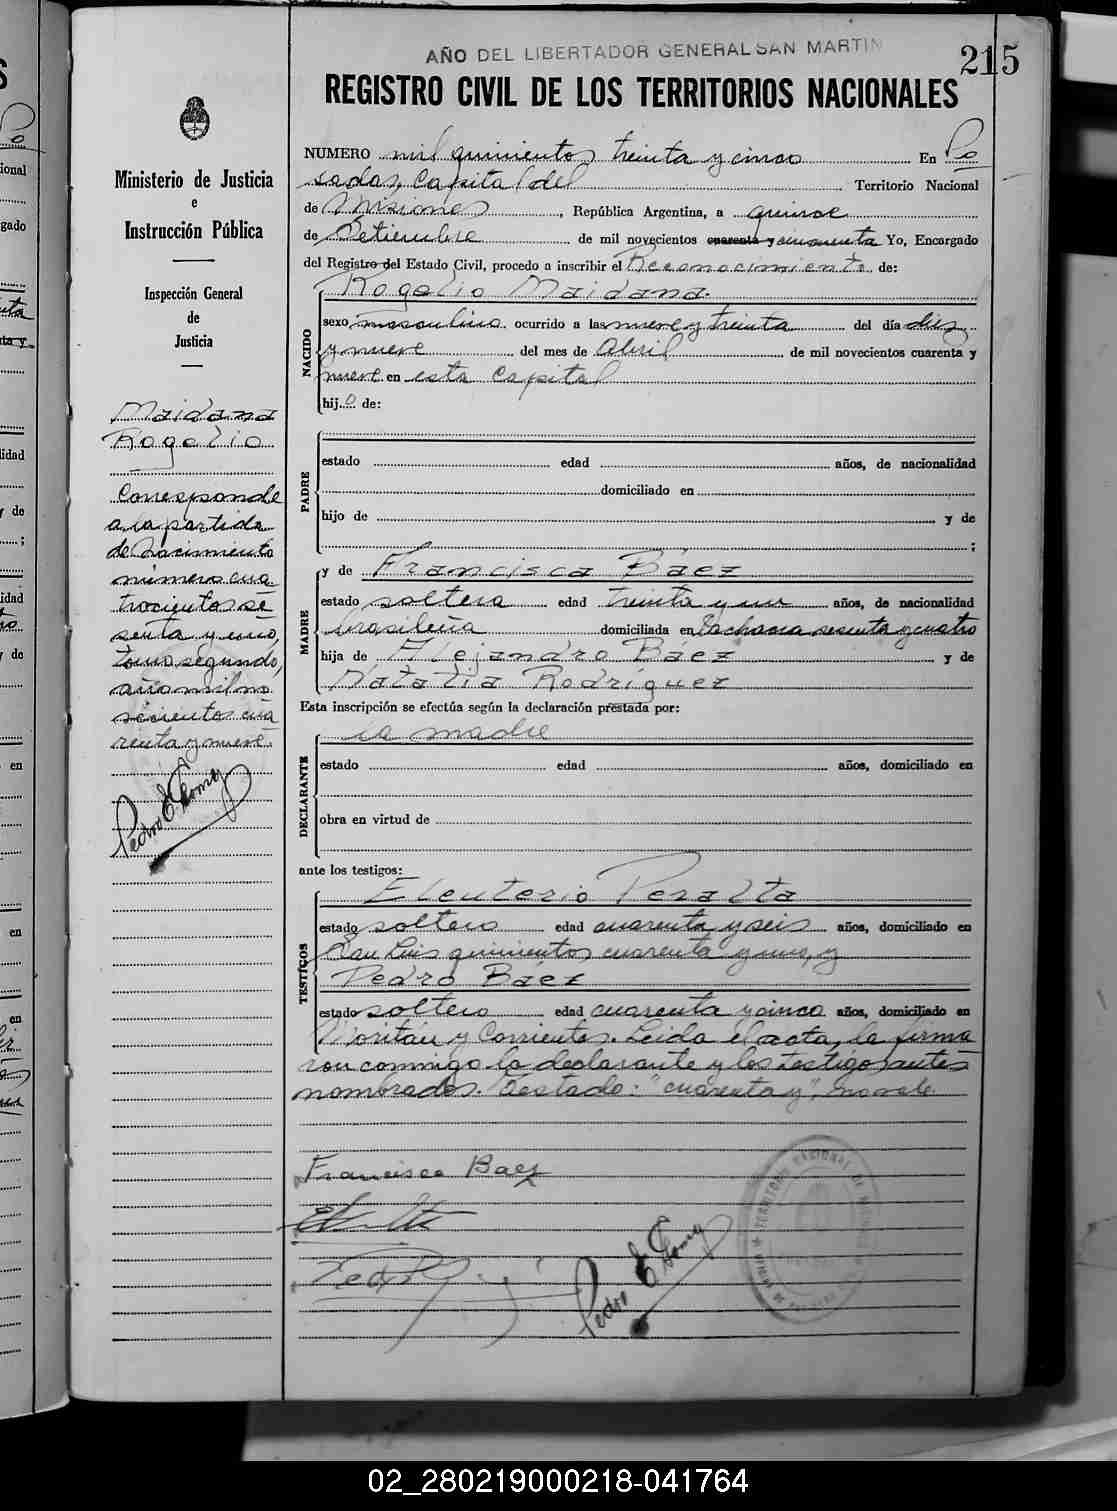 AÑO DEL LIBERTADOR GENERAL SAN MARTIN
215
REGISTRO CIVIL DE LOS TERRITORIOS NACIONALES
Ministerio de Justicia
e
Instrucción Pública
Inspección General
de
Justicia
Maidana
Rogelio
Corresponde
a la partida
de Nacimiento
número cua-
trocientos se
senta y uno,
tomo segundo,
año mil no-
vecientos cua
renta y nueve.
Pedro E. Gomez
NUMERO mil quinientos treinta y cinco En Po
sadas, Capital del Territorio Nacional
de Misiones, República Argentina, a quince
de Setiembre de mil novecientos cuarenta y cincuenta Yo, Encargado
del Registro del Estado Civil, procedo a inscribir el Reconocimiento de:
NACIDO
Rogelio Maidana.
sexo masculino ocurrido a las nueve y treinta del día diez
y nueve del mes de Abril de mil novecientos cuarenta y
nueve en esta Capital
hijo de:
PADRE
estado edad años, de nacionalidad
domiciliado en
hijo de y de
;
MADRE
y de Francisca Báez
estado soltera edad treinta y un años, de nacionalidad
brasileña domiciliada en la chacra sesenta y cuatro
hija de Alejandro Baez y de
Natalia Rodríguez
Esta inscripción se efectúa según la declaración prestada por:
DECLARANTE
la madre
estado edad años, domiciliado en
obra en virtud de
ante los testigos:
TESTIGOS
Eleuterio Peralta
estado soltero edad cuarenta y seis años, domiciliado en
San Luis quinientos cuarenta y uno, y
Pedro Báez
estado soltero edad cuarenta y cinco años, domiciliado en
y Corrientes. Leida el acta, la firma
ron conmigo la declarante y los testigos antes
nombrados. Testado: "cuarenta y", no vale.
Francisca Baez
Pedro E. Gomez
02_280219000218-041764